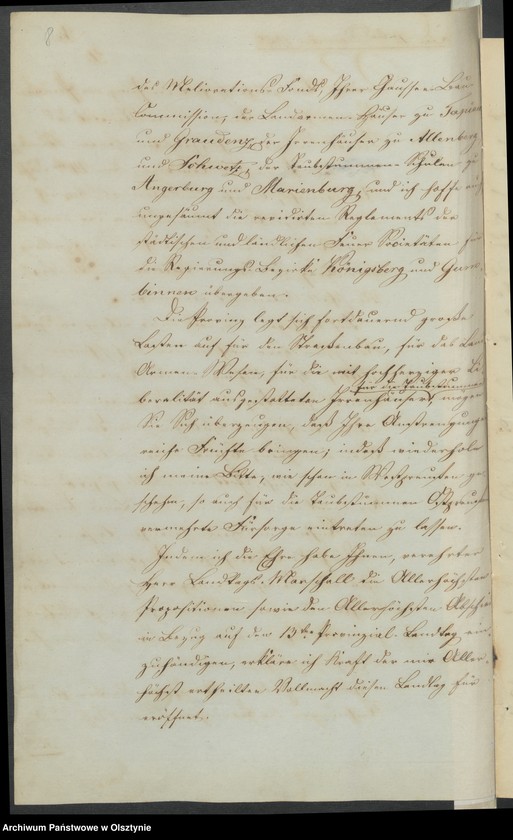 8
des Meliorations-Fonds, Ihrer Chaussee-Bau-
Commission, der Landarmen-Häuser zu Tapiau
und Graudenz, der Irrenhäuser zu Allenberg
und Schwetz, der Taubstummen-Schulen zu
Angerburg und Marienburg, und ich hoffe auch
ungesäumt die revidirten Reglements der
städtischen und ländlichen Feuer Societäten für
die Regierungs-Bezirke Königsberg und Gum-
binnen übergeben.
Die Provinz legt sich fortdauernd große
Lasten auf für den Straßenbau, für das Land
Armen-Wesen, für die mit hochherziger Li-
für die Taubstummen
beralität ausgestatteten Irrenhäuser, mögen
Sie Sich überzeugen, daß Ihre Anstrengungen
reiche Früchte bringen; indeß wiederhole
ich meine Bitte, wie schon in Westpreußen ge-
schehen, so auch für die Taubstummen Ostpreußens
vermehrte Fürsorge eintreten zu lassen.
Indem ich die Ehre habe Ihnen, verehrter
Herr Landtags-Marschall die Allerhöchsten
Propositionen sowie den Allerhöchsten Abschied
in Bezug auf den 13ten Provinzial-Landtag ein-
zuhändigen, erkläre ich Kraft der mir Aller-
höchst ertheilten Vollmacht diesen Landtag für
eröffnet.
Archiwum Państwowe w Olsztynie